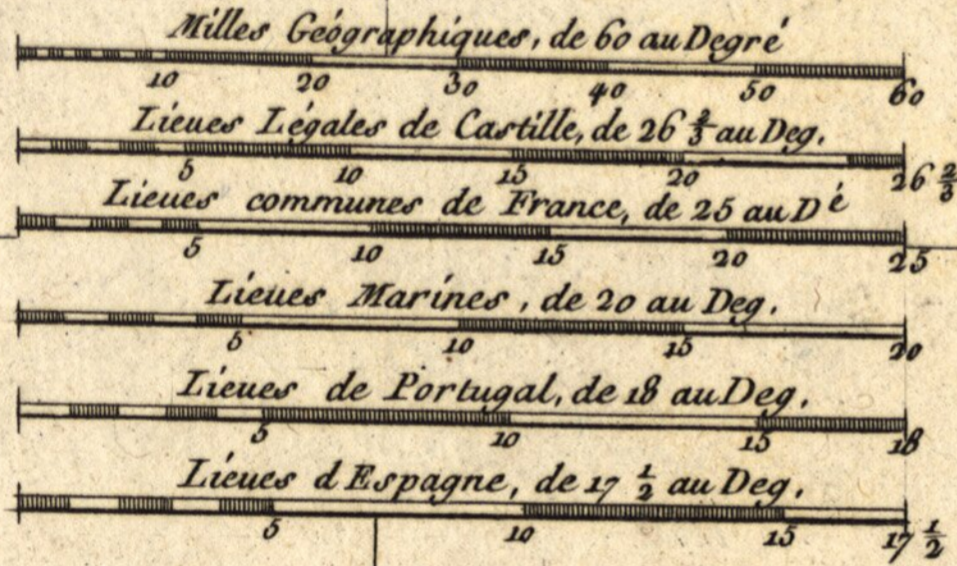 Milles Géographiques, de 60 au Degré
10 20 30 40 50 60
Lieues Légales de Castille, de 26 2/3 au Deg.
5 10 15 20 26 2/3
Lieues communes de France, de 25 au Dé
5 10 15 20 25
Lieues Marines, de 20 au Deg.
5 10 15 20
Lieues de Portugal, de 18 au Deg.
5 10 15 18
Lieues d Espagne, de 17 1/2 au Deg.
5 10 15 17 1/2